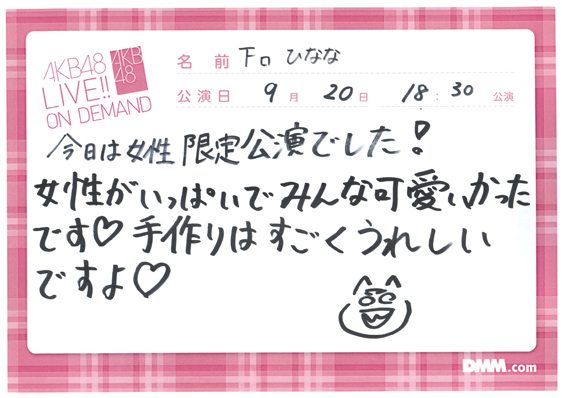 AKB48
LIVE!!
ON DEMAND
AKB
48
名前 下口 ひなな
公演日 9月20日 18:30 公演
今日は女性限定公演でした!
女性がいっぱいでみんな可愛いかった
です♡手作りはすごくうれしい
ですよ♡
DMM.com